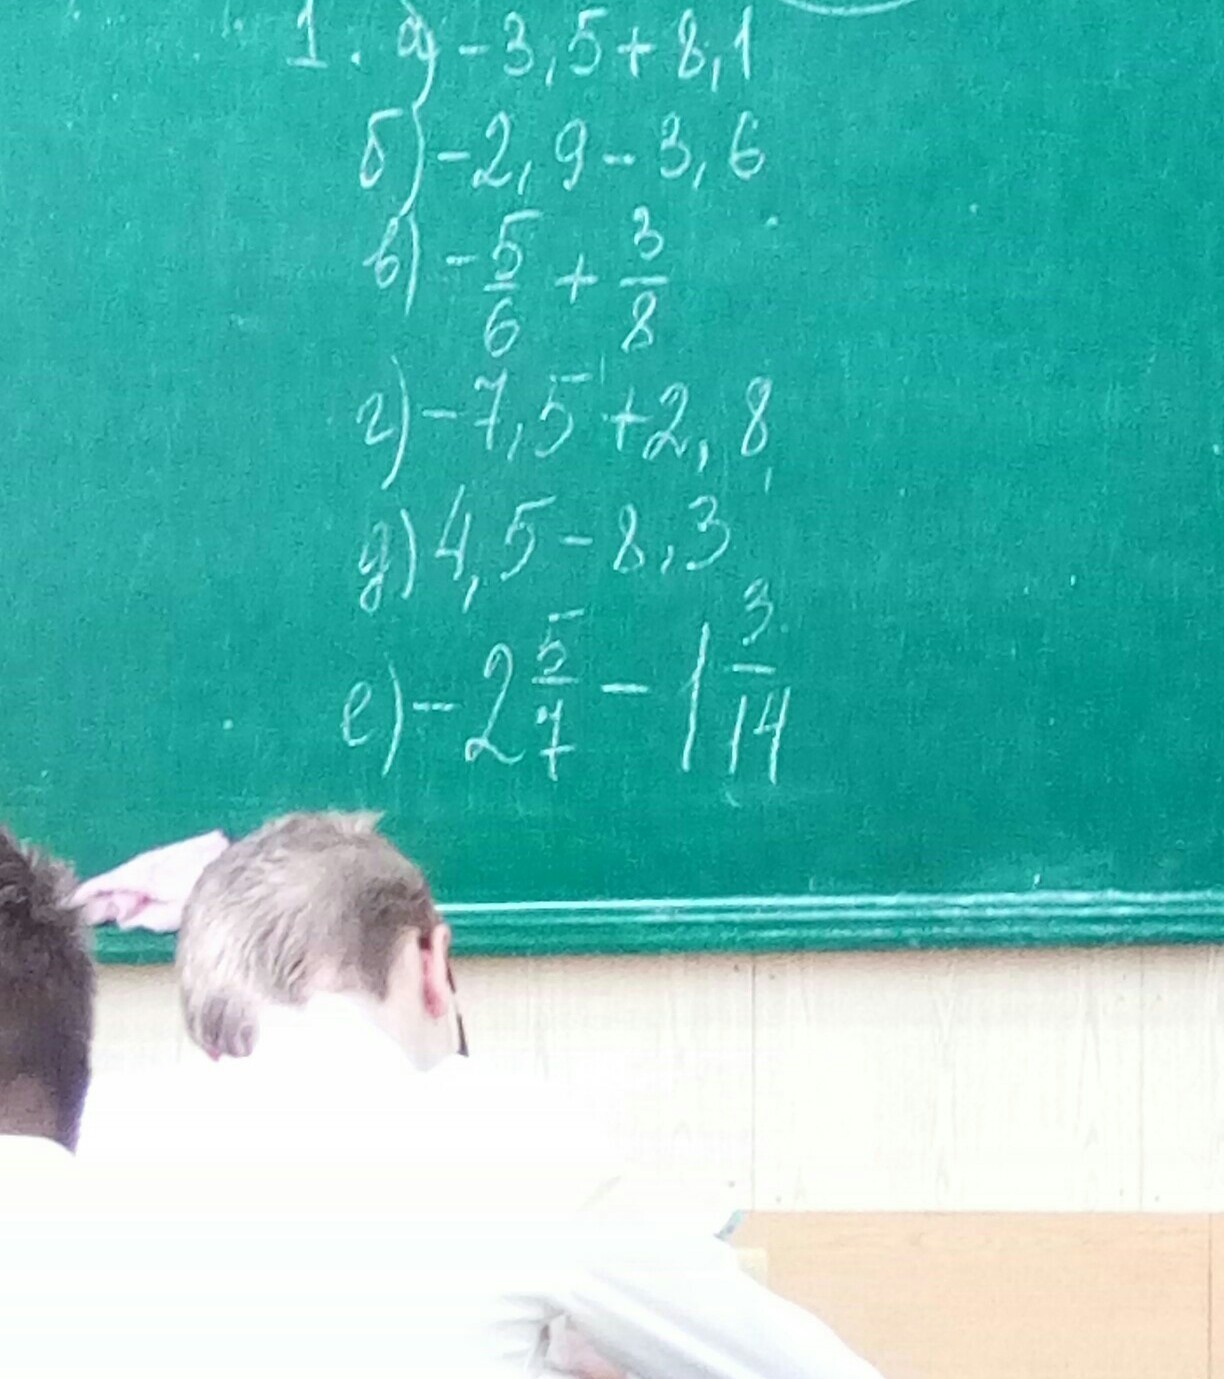 1. а) -3,5 + 8,1
б) -2,9 - 3,6
в) -5/6 + 3/8
г) -7,5 + 2,8
д) 4,5 - 8,3
е) -2 5/7 - 1 3/14